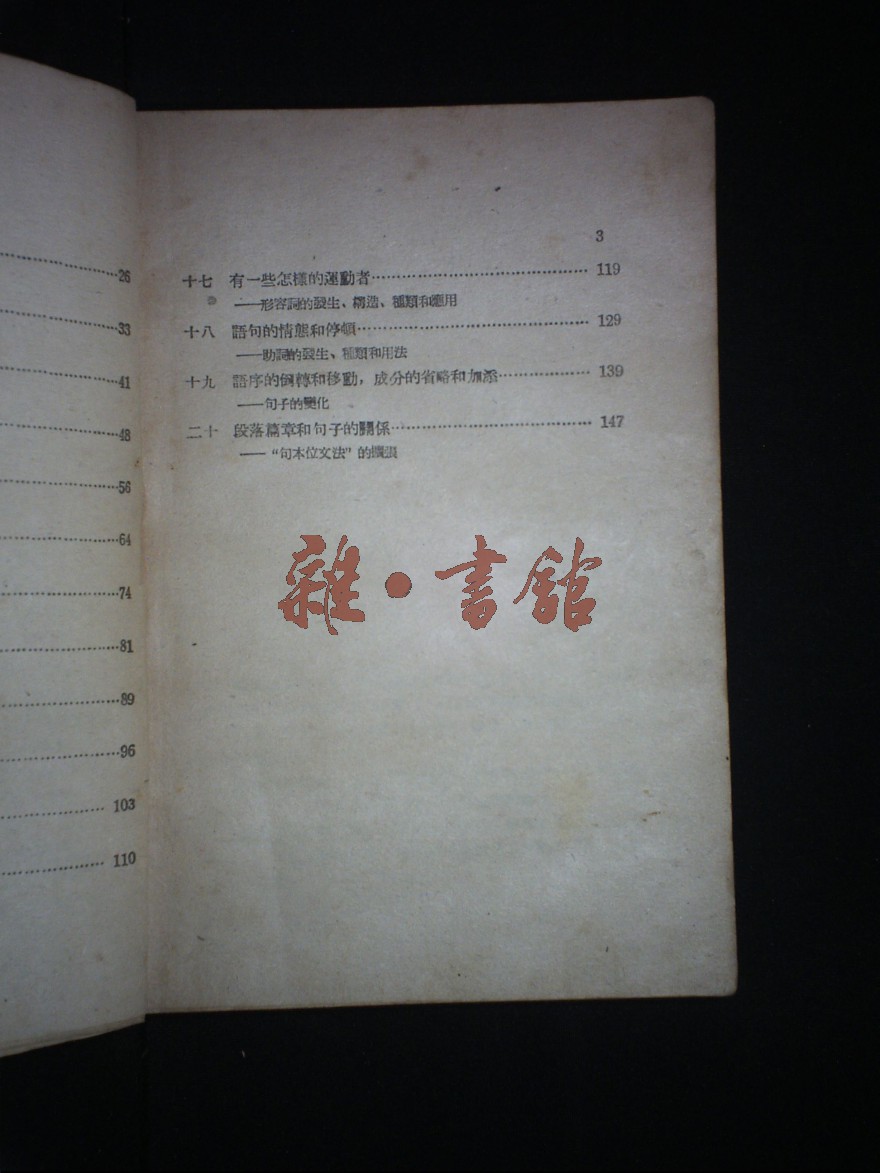 ……26
……33
……41
……48
……56
……64
……74
……81
……89
……96
……103
……110
3
十七 有一些怎樣的運動者……119
——形容詞的發生、構造、種類和應用
十八 語句的情態和停頓……129
——助詞的發生、種類和用法
十九 語序的倒轉和移動，成分的省略和加添……139
——句子的變化
二十 段落篇章和句子的關係……147
——“句本位文法”的擴張
雜·書館